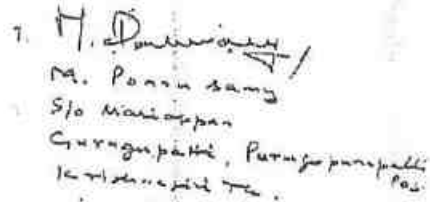 1. M. Ponnusamy
M. Ponnu samy
S/o Mariappan
Guragupatti, Purugupanapalli
Pos.
Krishnagiri Tk.